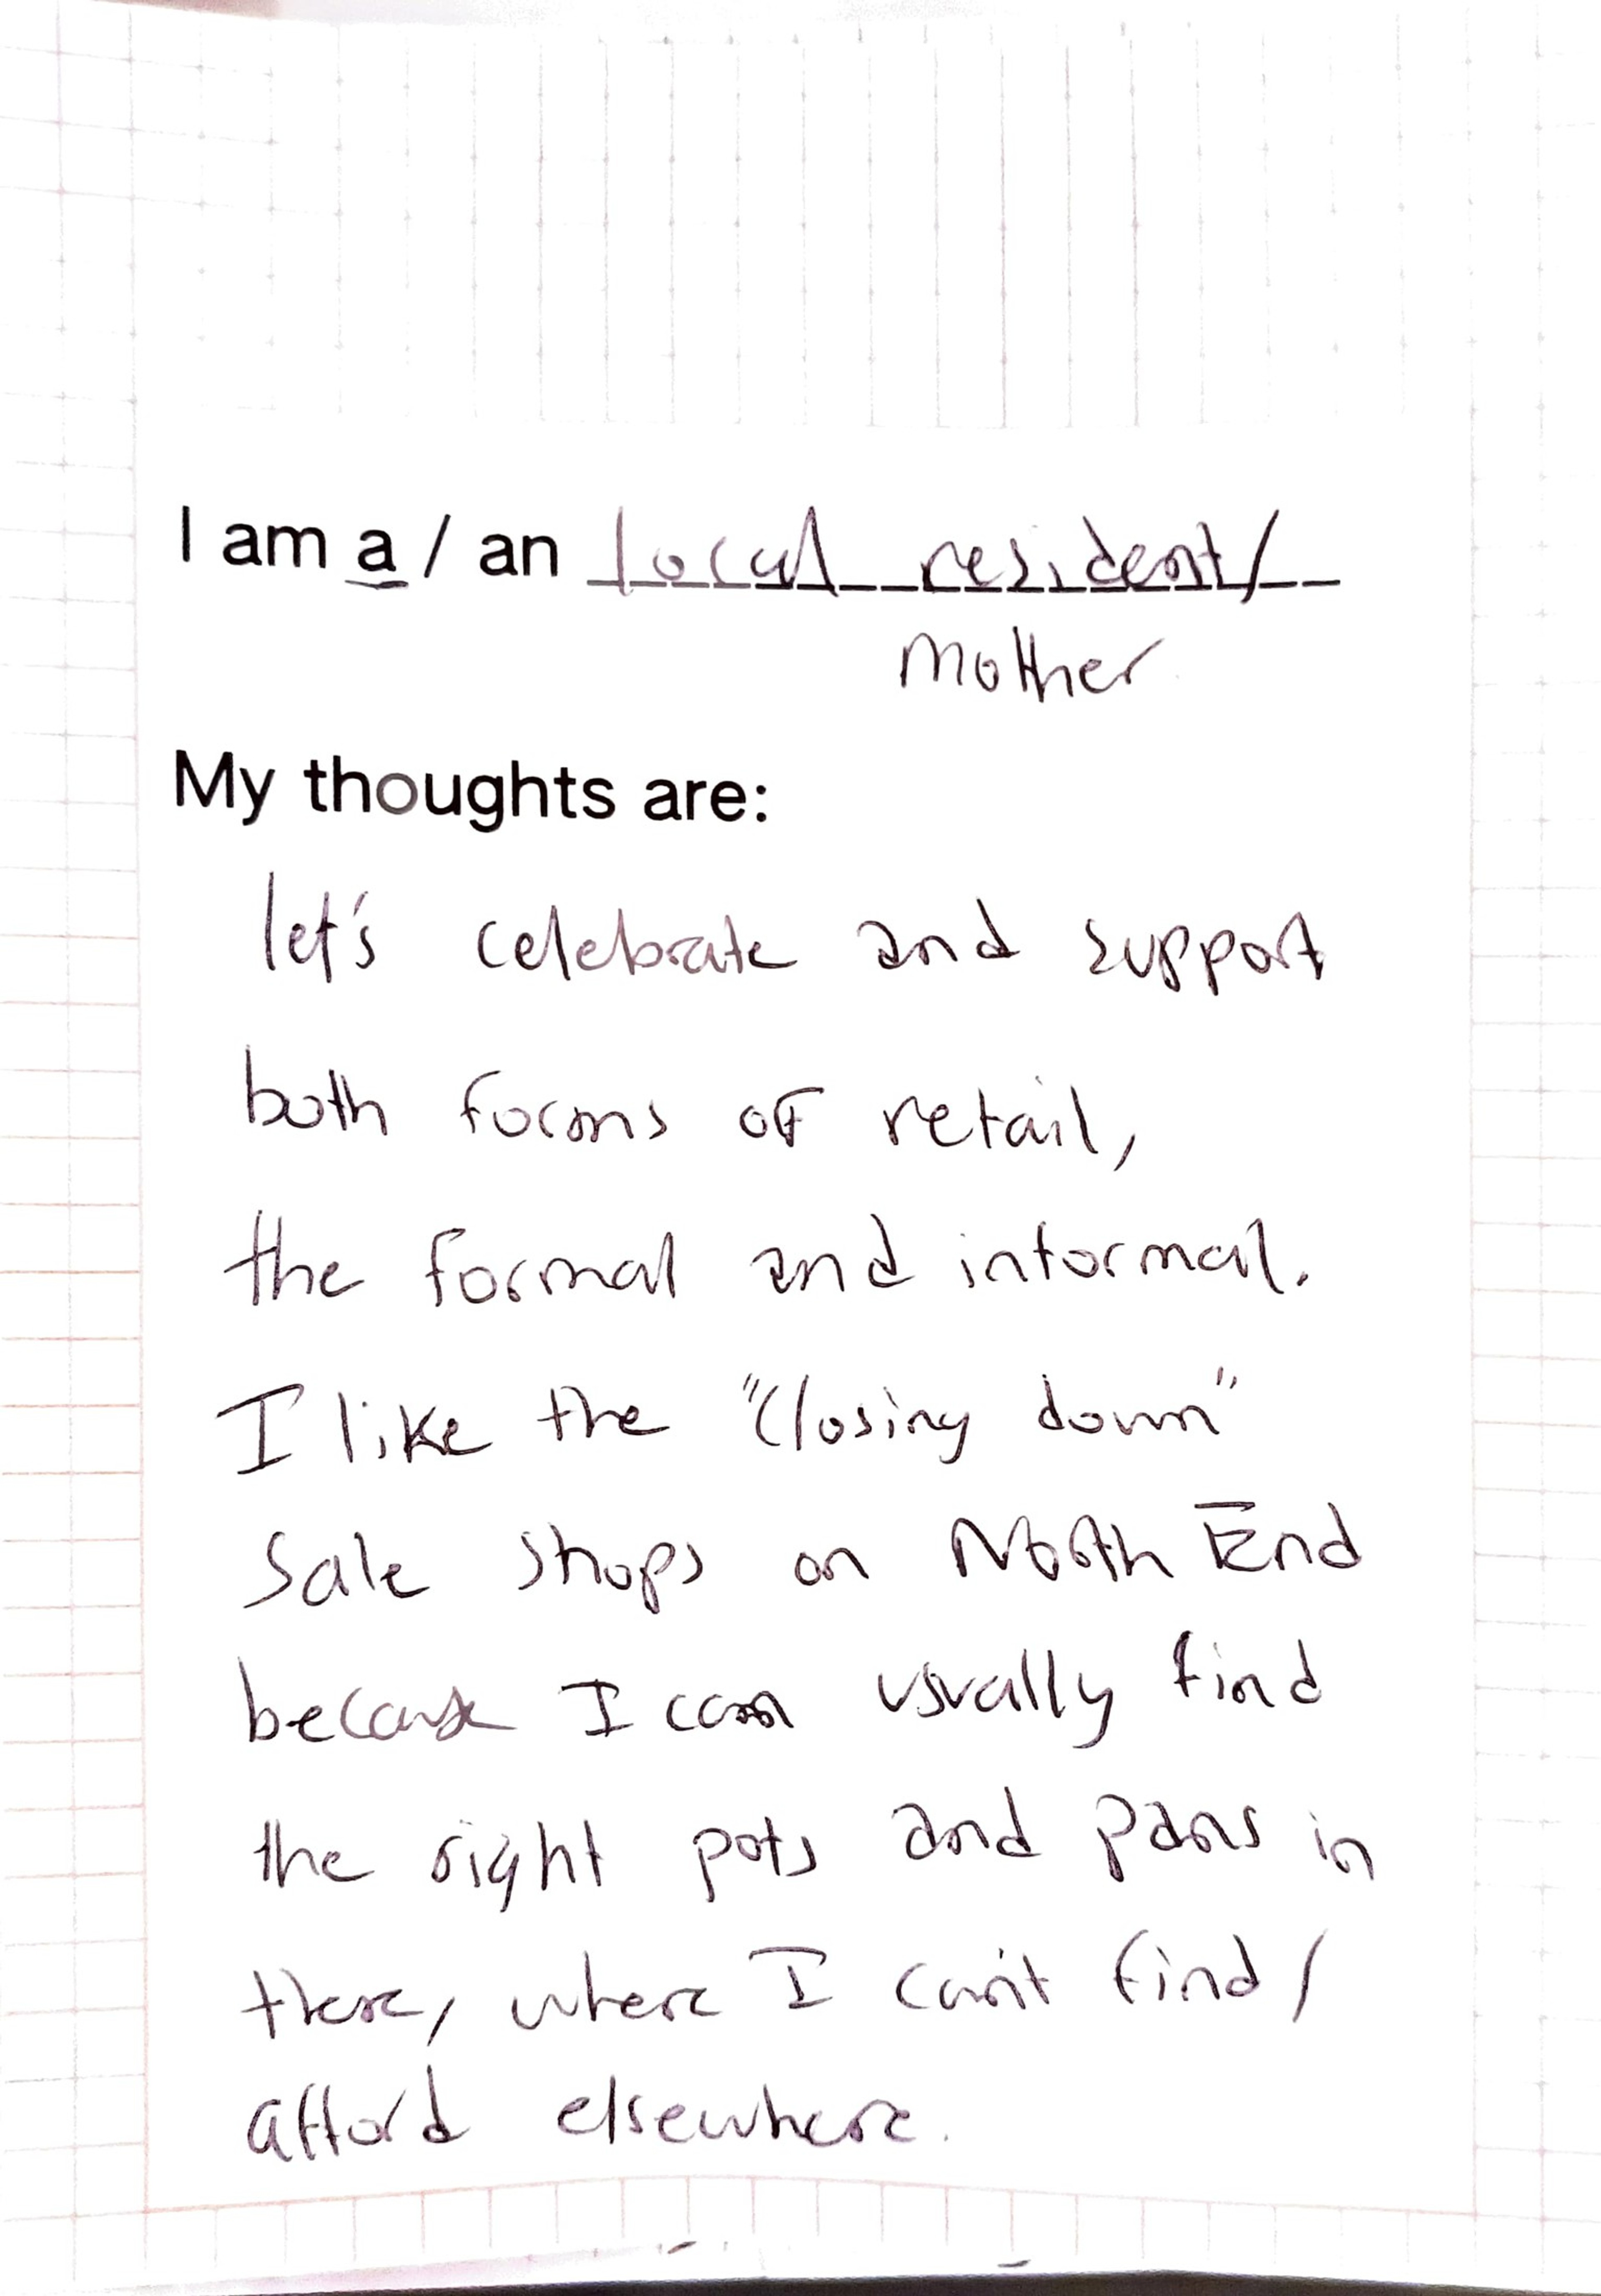 I am a / an local resident/
mother
My thoughts are:
let's celebrate and support
both forms of retail,
the formal and informal.
I like the "closing down"
sale shops on North End
because I can usually find
the right pots and pans in
there, where I can't find/
afford elsewhere.